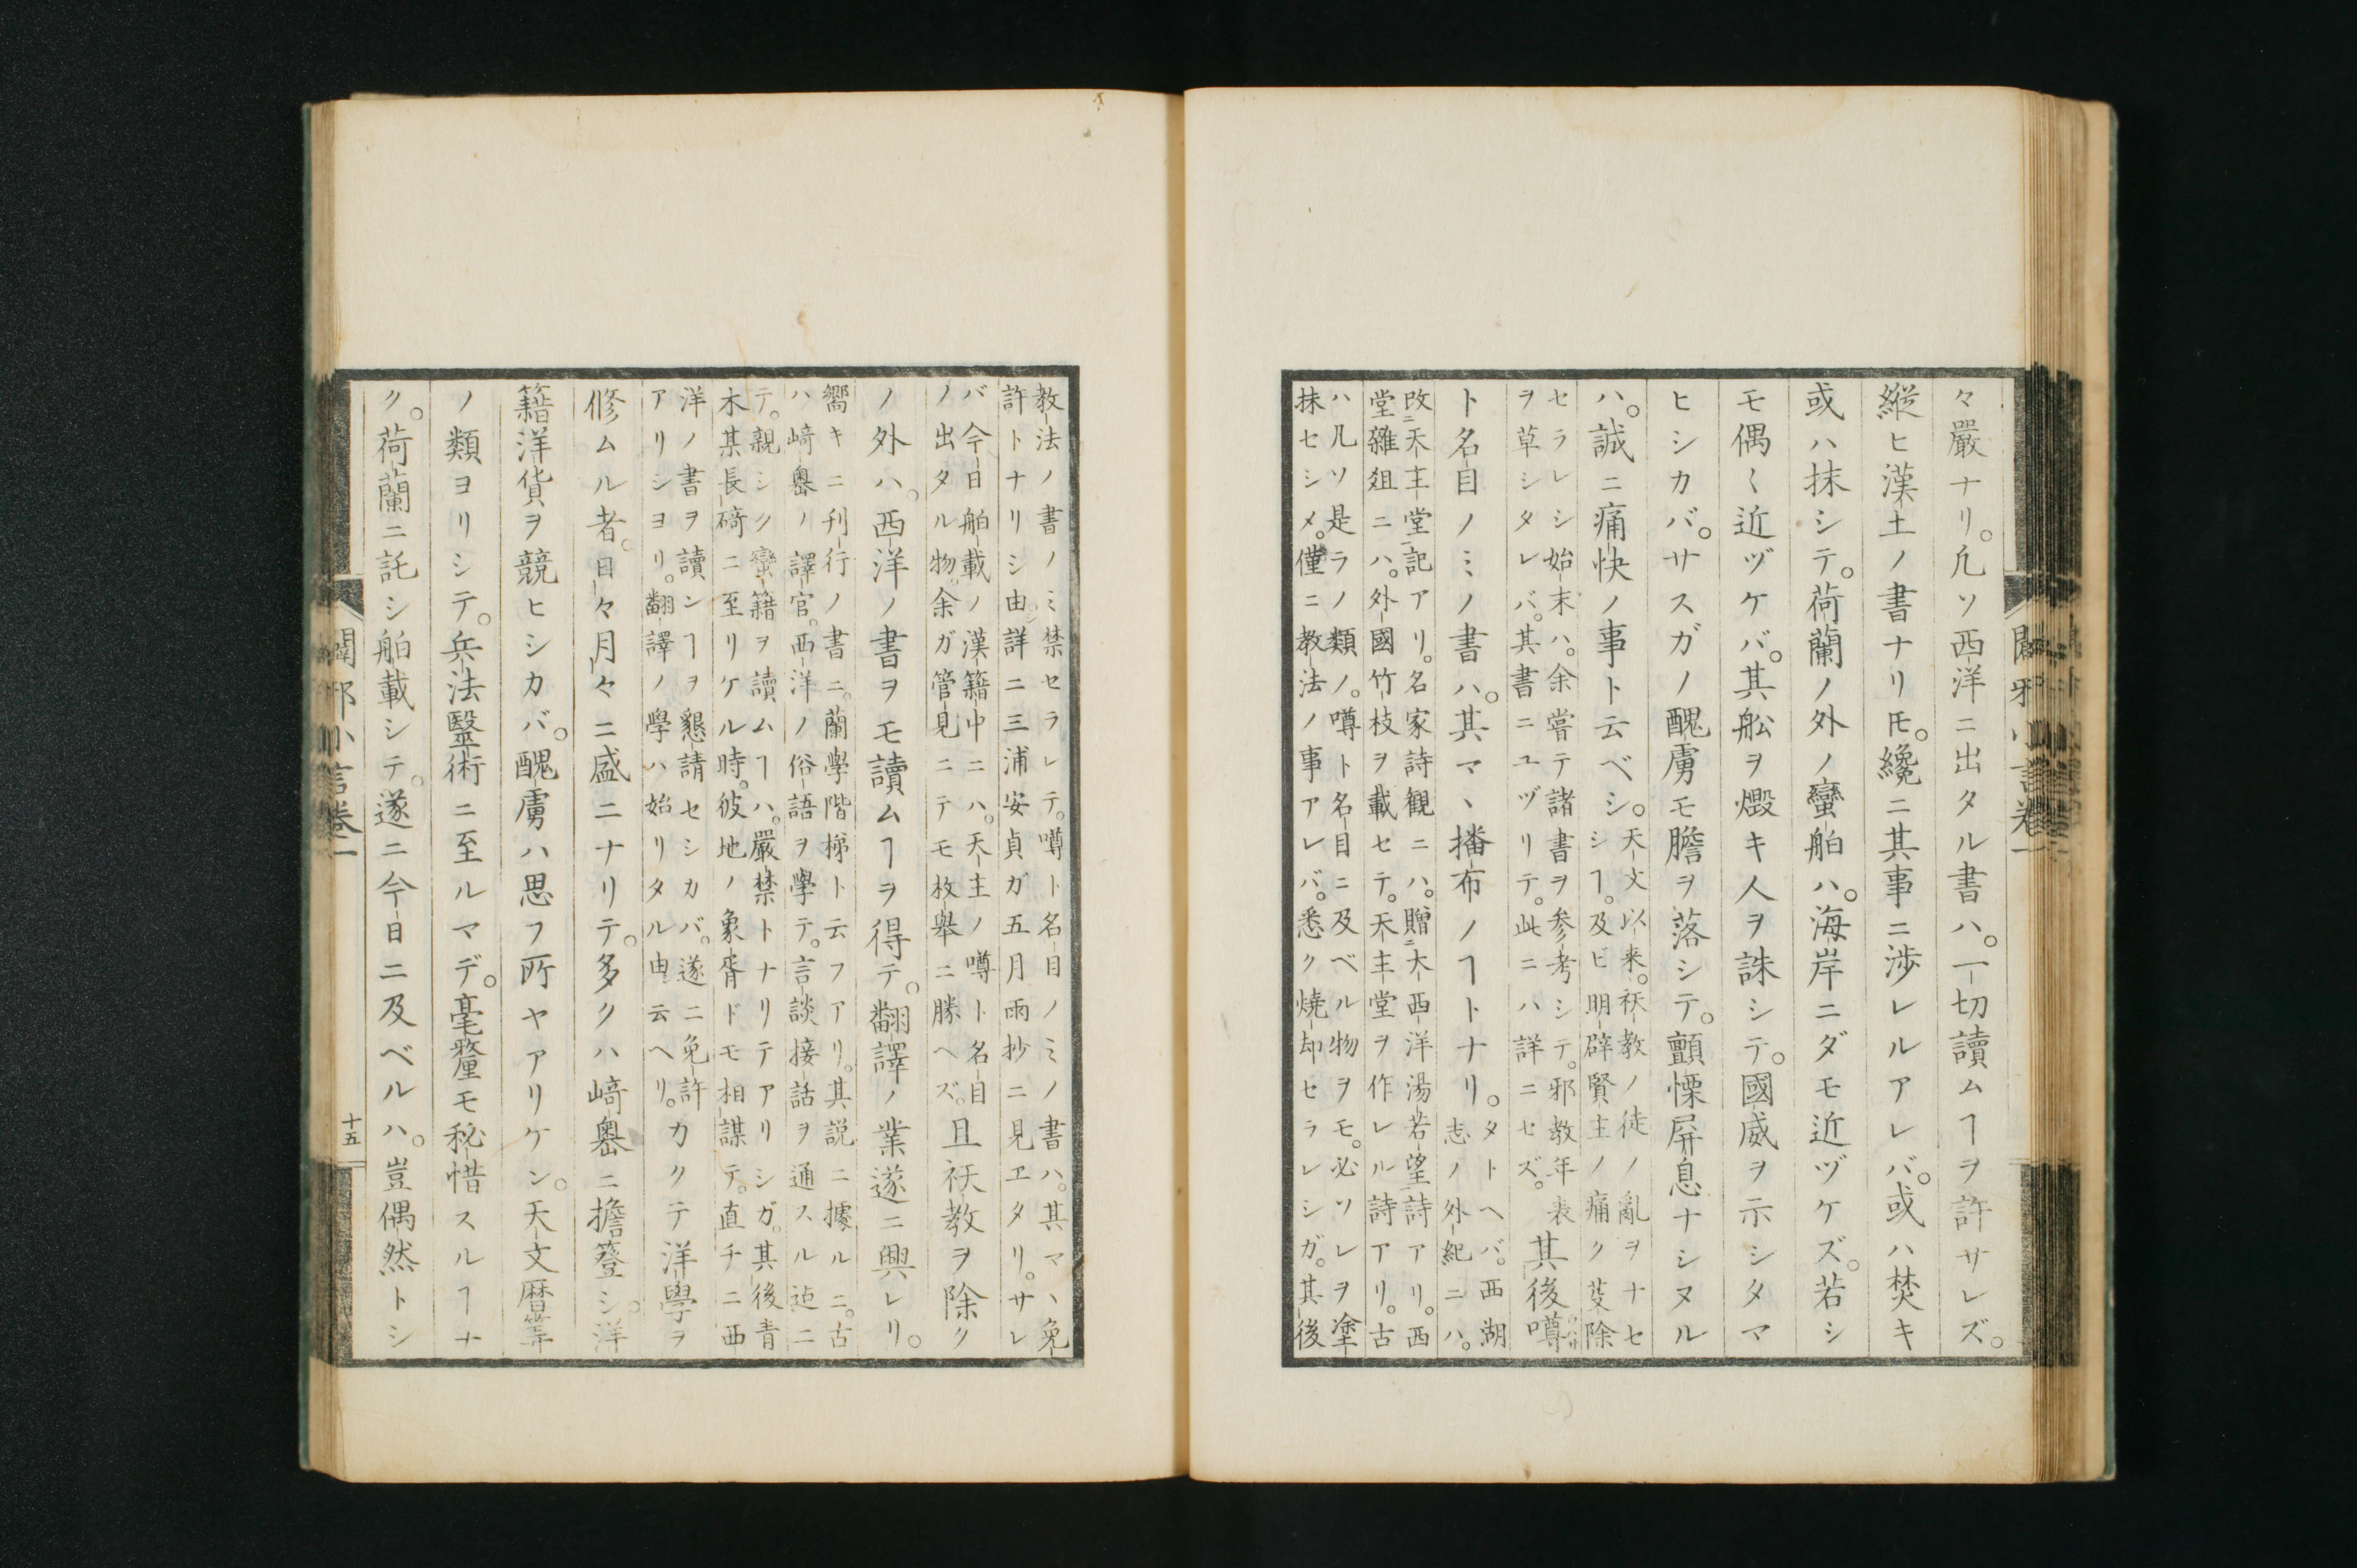 々嚴ナリ。凢ソ西洋ニ出タル書ハ。一切讀ムヿヲ許サレズ。
縱ヒ漢土ノ書ナリ𪜈。纔ニ其事ニ渉レルアレバ。或ハ焚キ
或ハ抹シテ。荷蘭ノ外ノ蠻舶ハ。海岸ニダモ近ヅケズ。若シ
モ偶〱近ヅケバ。其舩ヲ燬キ人ヲ誅シテ。國威ヲ示シタマ
ヒシカバ。サスガノ醜虜モ膽ヲ落シテ。顫慄屏息ナシヌル
ハ。誠ニ痛快ノ事ト云ベシ。
天文以来。祆教ノ徒ノ亂ヲナセ
シヿ。及ビ明辟賢主ノ痛ク芟除
セラレシ始末ハ。余嘗テ諸書ヲ参考シテ。邪教年表
ヲ草シタレバ。其書ニユヅリテ。此ニハ詳ニセズ。
其後噂
ト名目ノミノ書ハ。其マヽ播布ノヿトナリ。
タトヘバ。西湖
志ノ外紀ニハ。
改天主堂記アリ。名家詩觀ニハ。贈大西洋湯若望詩アリ。西
堂雜俎ニハ。外國竹枝ヲ載セテ。天主堂ヲ作レル詩アリ。古
ハ凡ソ是ラノ類ノ。噂ト名目ニ及ベル物ヲモ。必ソレヲ塗
抹セシメ。僅ニ教法ノ事アレバ。悉ク燒却セラレシガ。其後
教法ノ書ノミ禁セラレテ。噂ト名目ノミノ書ハ。其マヽ免
許トナリシ由。詳ニ三浦安貞ガ五月雨抄ニ見エタリ。サレ
バ今日舶載ノ漢籍中ニハ。天主ノ噂ト名目
ノ出タル物。余ガ管見ニテモ枚擧ニ勝ヘズ。
且祆教ヲ除ク
ノ外ハ。西洋ノ書ヲモ讀ムヿヲ得テ。翻譯ノ業遂ニ興レリ。
嚮キニ刋行ノ書ニ。蘭學階梯ト云フアリ。其説ニ據ルニ。古
ハ﨑嶴ノ譯官。西洋ノ俗語ヲ學テ。言談接話ヲ通スル迠ニ
テ。親シク蠻籍ヲ讀ムヿハ。嚴禁トナリテアリシガ。其後青
木某長碕ニ至リケル時。彼地ノ象胥ドモ相謀テ。直チニ西
洋ノ書ヲ讀ンヿヲ懇請セシカバ。遂ニ免許
アリシヨリ。翻譯ノ學ハ始リタル由云ヘリ。
カクテ洋學ヲ
修ムル者。日々月々ニ盛ニナリテ。多クハ﨑嶴ニ擔簦シ。洋
籍洋貨ヲ競ヒシカバ。醜虜ハ思フ所ヤアリケン。天文暦筭
ノ類ヨリシテ。兵法醫術ニ至ルマデ。毫釐モ秘惜スルヿナ
ク。荷蘭ニ託シ舶載シテ。遂ニ今日ニ及ベルハ。豈偶然トシ
闢邪小言卷一
十五